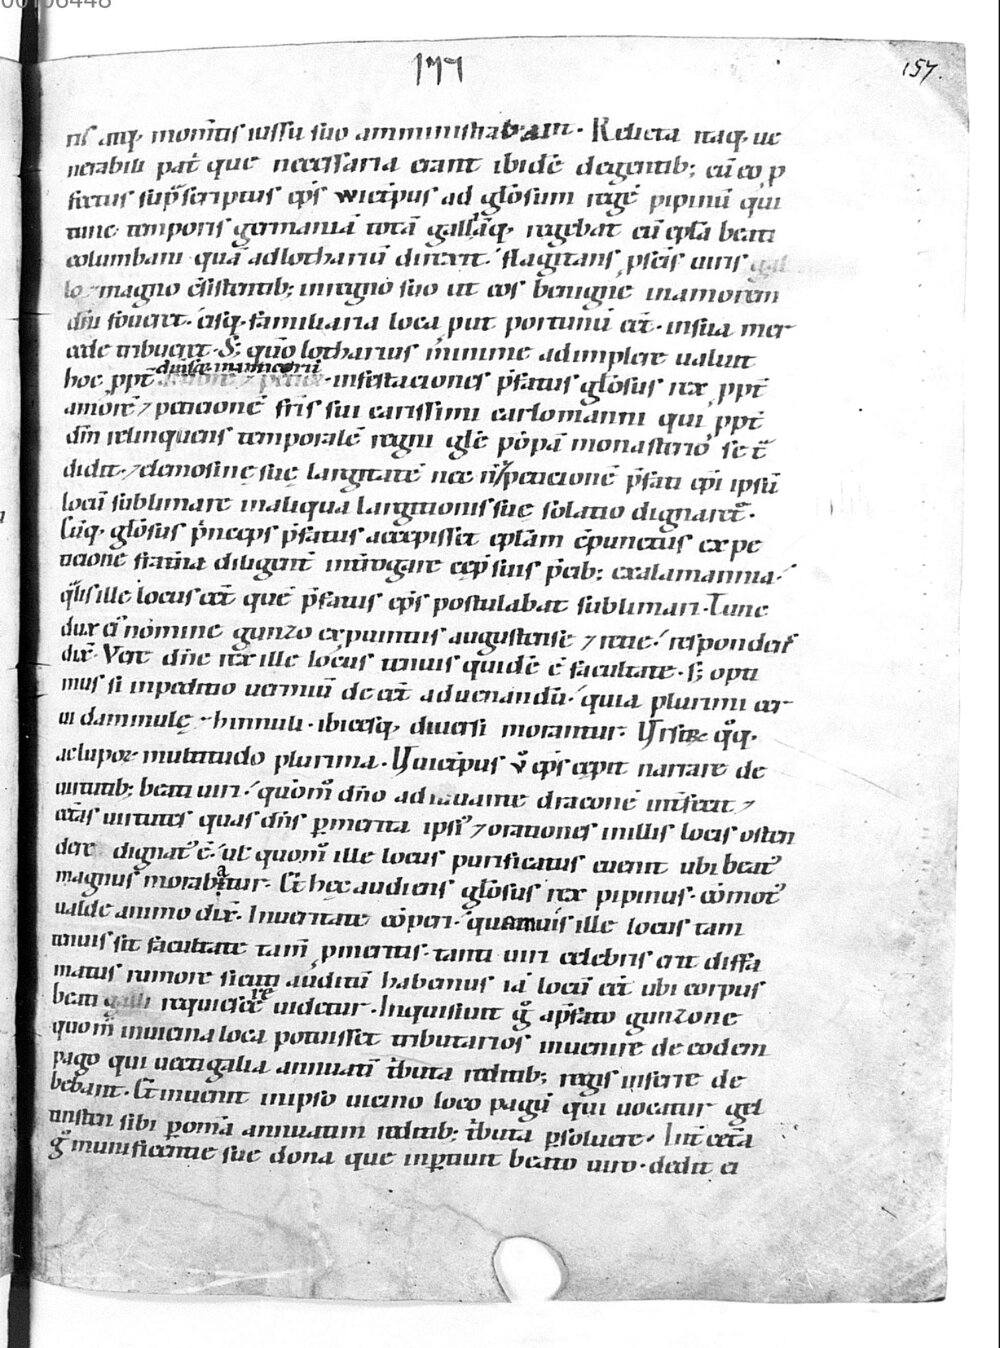 00106448
157.
ris atq; monitis iussu suo amministrabant. Relicta itaq; ue
nerabili pat̄ que necessaria erant ibidē degentib; cū eo p
fectus sup̄scriptus ep̄s wictpus ad gl̄osum regē pipinū qui
tunc temporis germaniā totā galliāq; regebat cū epl̄a beati
columbani quā ad lothariū direxit. flagitans p̄scis uiris gal
lo ⁊ magno ex̄sistentib; in regno suo ut eos benigne in amorem
dn̄i foueret. eisq; familiaria loca, put portunū eēt. in sua mer
cede tribueret. S; quō lotharius minime adimplere ualuit
hoc ppt̄ infestaciones p̄fatus gl̄osus rex ppt̄
diuisas inimicorū
amorē ⁊ peticionē fr̄is sui carissimi carlomanni qui ppt̄
dm̄ relinquens temporalē regni gl̄ē monasterio se t̄
didit. ⁊ elemosinę suę largitatē nec n̄ peticionē p̄fati ep̄i ipsū
locū sublimare in aliqua largitionis suę solatio dignaret̄.
Cūq; gl̄osus p̄nceps p̄fatus accepisset epl̄am cōpunctus ex pe
ticione statim diligent̄ int̄rogare cep̄ suis p̄cib; ex alamannia.
q̄lis ille locus eēt quē p̄fatus ep̄s postulabat sublimari. Tunc
dux ei nomine gunzo ex partibus augustense ⁊ respondens
dix̄. Vere dn̄e rex ille locus tenuis quidē ē facultate. s; opti
mus si inpeditio uermiū deēēt ad uenandū. quia plurimi cer
ui dammulę ⁊ hinnuli. ibicesq; diuersi morantur. Vrsorꝝ q̄q;
ac lupoꝝ multitudo plurima. Wictpus ū ep̄s cepit narrare de
uirtutib; beati uiri. quom̄ dn̄o adiuuante draconē int̄fecit ⁊
cet̄as uirtutes quas dn̄s p merita ipsi⁹ ⁊ orationes in illis locis osten
dere dignat⁹ ē. ut quom̄ ille locus purificatus euenit ubi beat⁹
magnus morabatur. Et hęc audiens gl̄osus rex pipinus. cōmot⁹
ualde animo dix̄. In ueritate cōperi. quamuis ille locus tam
tenuis sit facultate tam̄ p meritis. tanti uiri celebris erit diffa
matus rumore sicut auditū habemus iā locū eēt ubi corpus
beati galli requiescere uidetur. Inquisiuit g̊ a p̄fato gunzone
quom̄ in uicina loca potuisset tributarios inuenire de eodem
pago qui uectigalia annuatī t̄buta reditib; regis inferre de
bebant. Et inuenit in ipso uicino loco pagū qui uocatur gel
tinstein sibi p omā annuatim reditib; t̄buta psoluere. Int̄ cet̄a
g̊ munificentie sue dona que inptiuit beato uiro. dedit ei